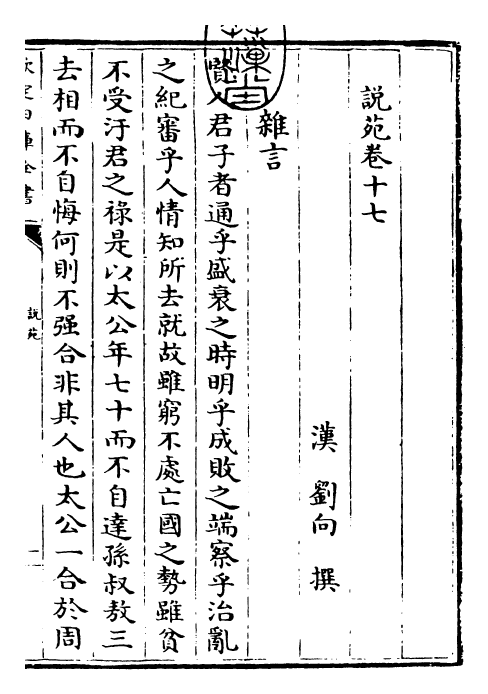 說苑卷十七
漢 劉向 撰
雜言
賢人君子者通乎盛衰之時明乎成敗之端察乎治亂
之紀審乎人情知所去就故雖窮不處亡國之勢雖貧
不受汙君之祿是以太公年七十而不自達孫叔敖三
去相而不自悔何則不强合非其人也太公一合於周
說苑